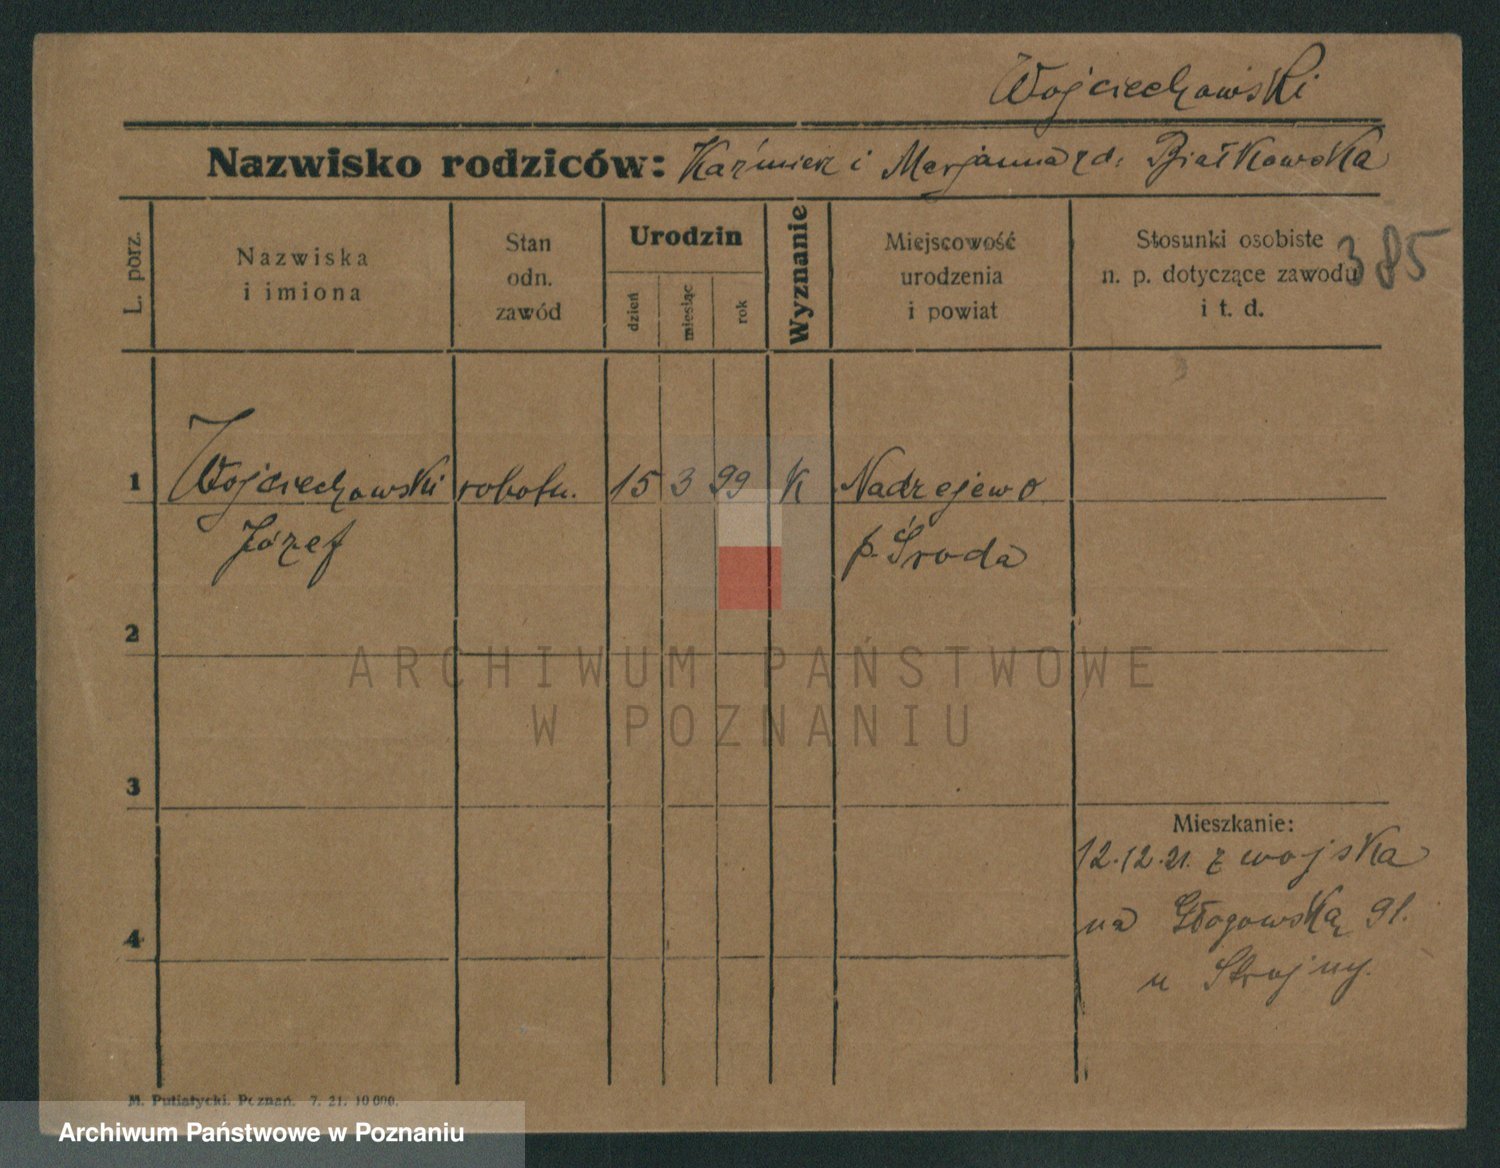 Wojciechowski
Nazwisko rodziców: Kaźmierz i Marjanna zd. Białkowska
L. porz.
Nazwiska
i imiona
Stan
odn.
zawód
Urodzin
dzień
miesiąc
rok
Wyznanie
Miejscowość
urodzenia
i powiat
Stosunki osobiste
n. p. dotyczące zawodu
i t. d.
385
1 Wojciechowski robotn. 15 3 99 K Nadziejewo
Józef p. Środa
2
3
4
Mieszkanie:
12.12.21. z wojska
na Głogowską 91.
u Strojny.
ARCHIWUM PAŃSTWOWE
W POZNANIU
M. Putiatycki. Poznań. 7. 21. 10 000.
Archiwum Państwowe w Poznaniu